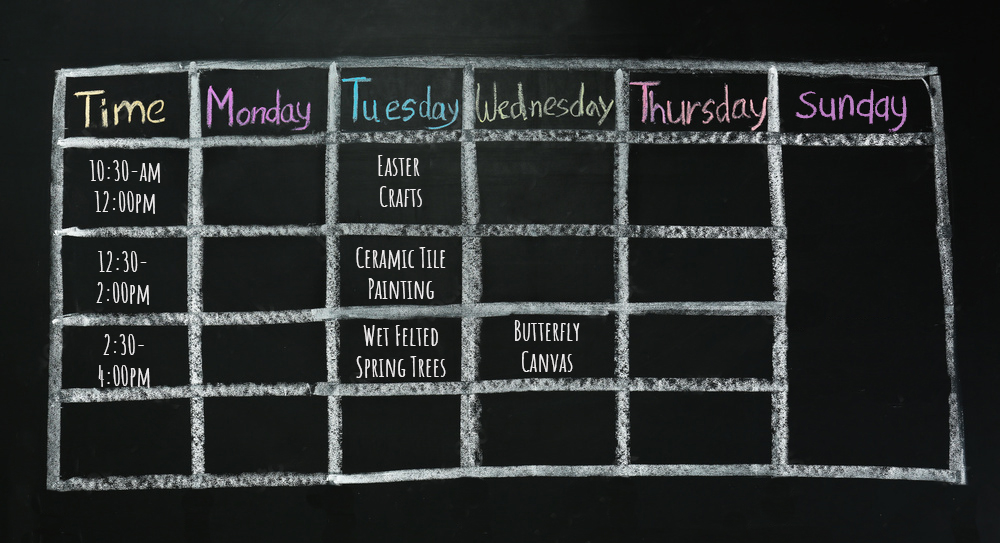 Time Monday Tuesday Wednesday Thursday Sunday
10:30-AM
12:00PM
EASTER
CRAFTS
12:30-
2:00PM
CERAMIC TILE
PAINTING
2:30-
4:00PM
WET FELTED
SPRING TREES
BUTTERFLY
CANVAS